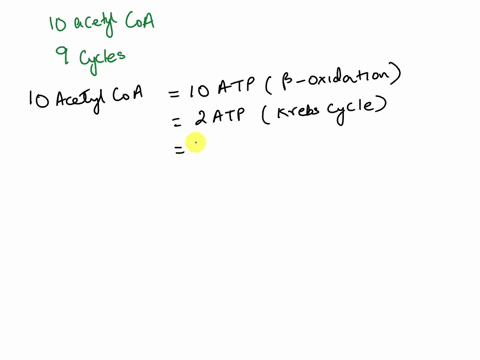 10 acetyl CoA
9 Cycles
10 Acetyl CoA = 10 ATP (β-oxidation)
= 2 ATP (Krebs cycle)
=